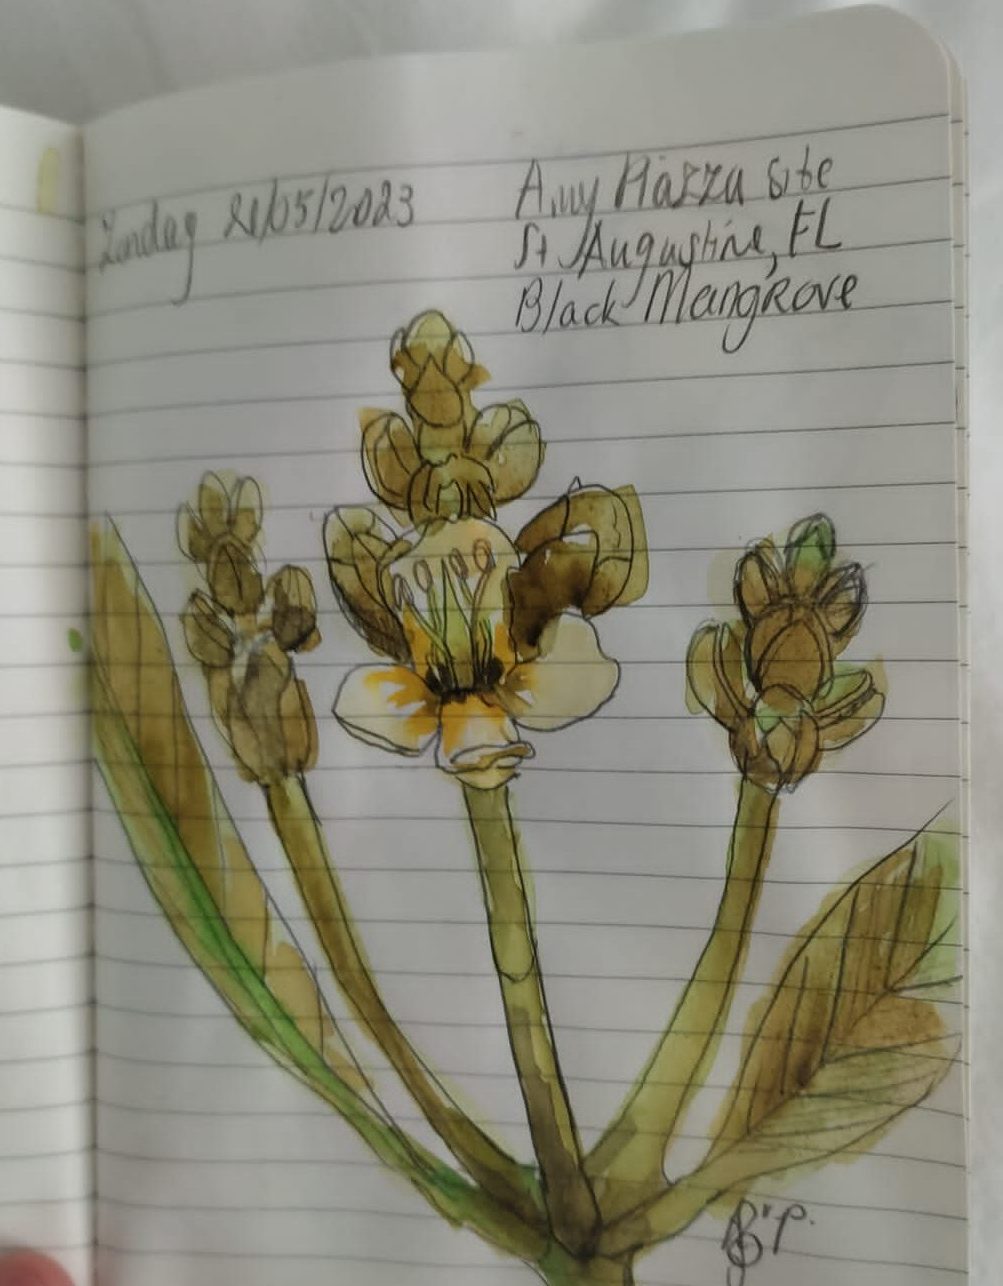 Zondag 21/05/2023
Amy Piazza Site
St Augustine, FL
Black Mangrove